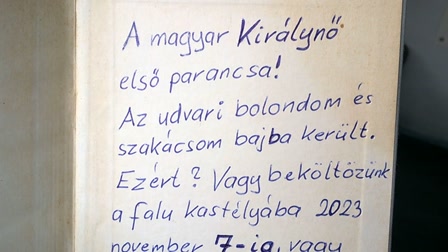 A magyar Királynő
első parancsa!
Az udvari bolondom és
szakácsom bajba került.
Ezért? Vagy beköltözünk
a falu kastélyába 2023
november 7-ig, vagy